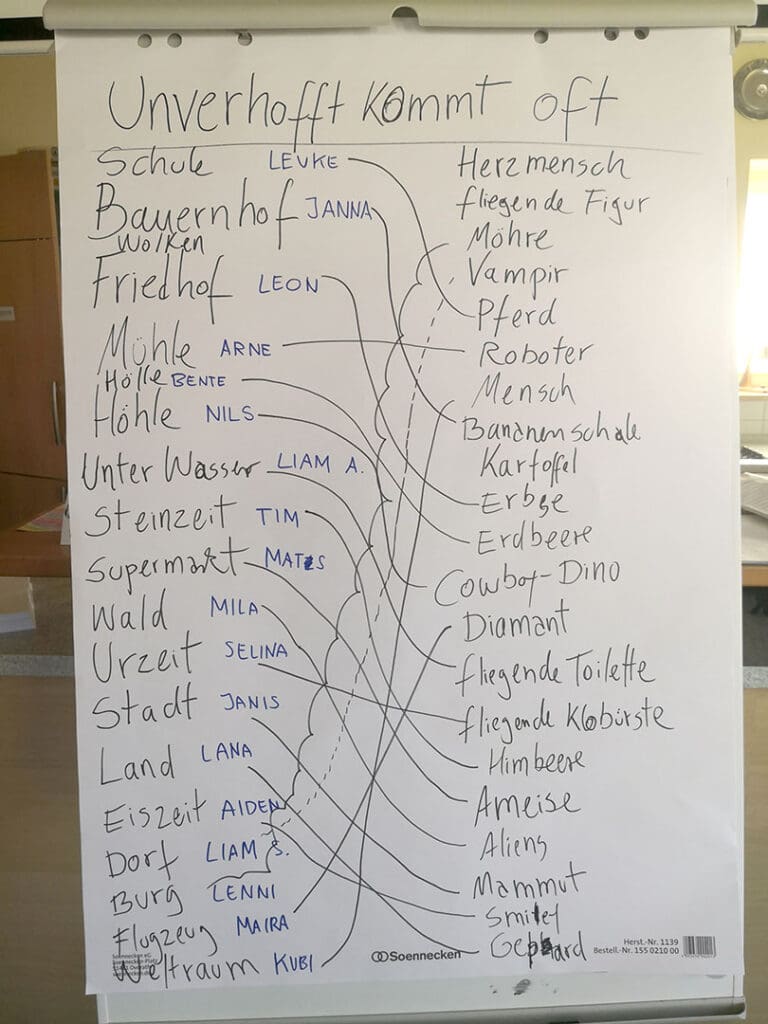 Unverhofft kommt oft
Schule LEVKE Herzmensch
Bauernhof JANNA fliegende Figur
Wolken Möhre
Friedhof LEON Vampir
Pferd
Mühle ARNE Roboter
Hölle BENTE Mensch
Höhle NILS Bananenschale
Unter Wasser LIAM A. Kartoffel
Erbse
Steinzeit TIM Erdbeere
Supermarkt MATS Cowboy-Dino
Wald MILA Diamant
Urzeit SELINA fliegende Toilette
Stadt JANIS fliegende Klobürste
Land LANA Himbeere
Eiszeit AIDEN Ameise
Dorf LIAM S. Aliens
Burg LENNI Mammut
Flugzeug MAIRA Smiley
Weltraum KUBI Gephard
Soennecken
Herst.-Nr. 1139
Bestell.-Nr. 155 0210 00